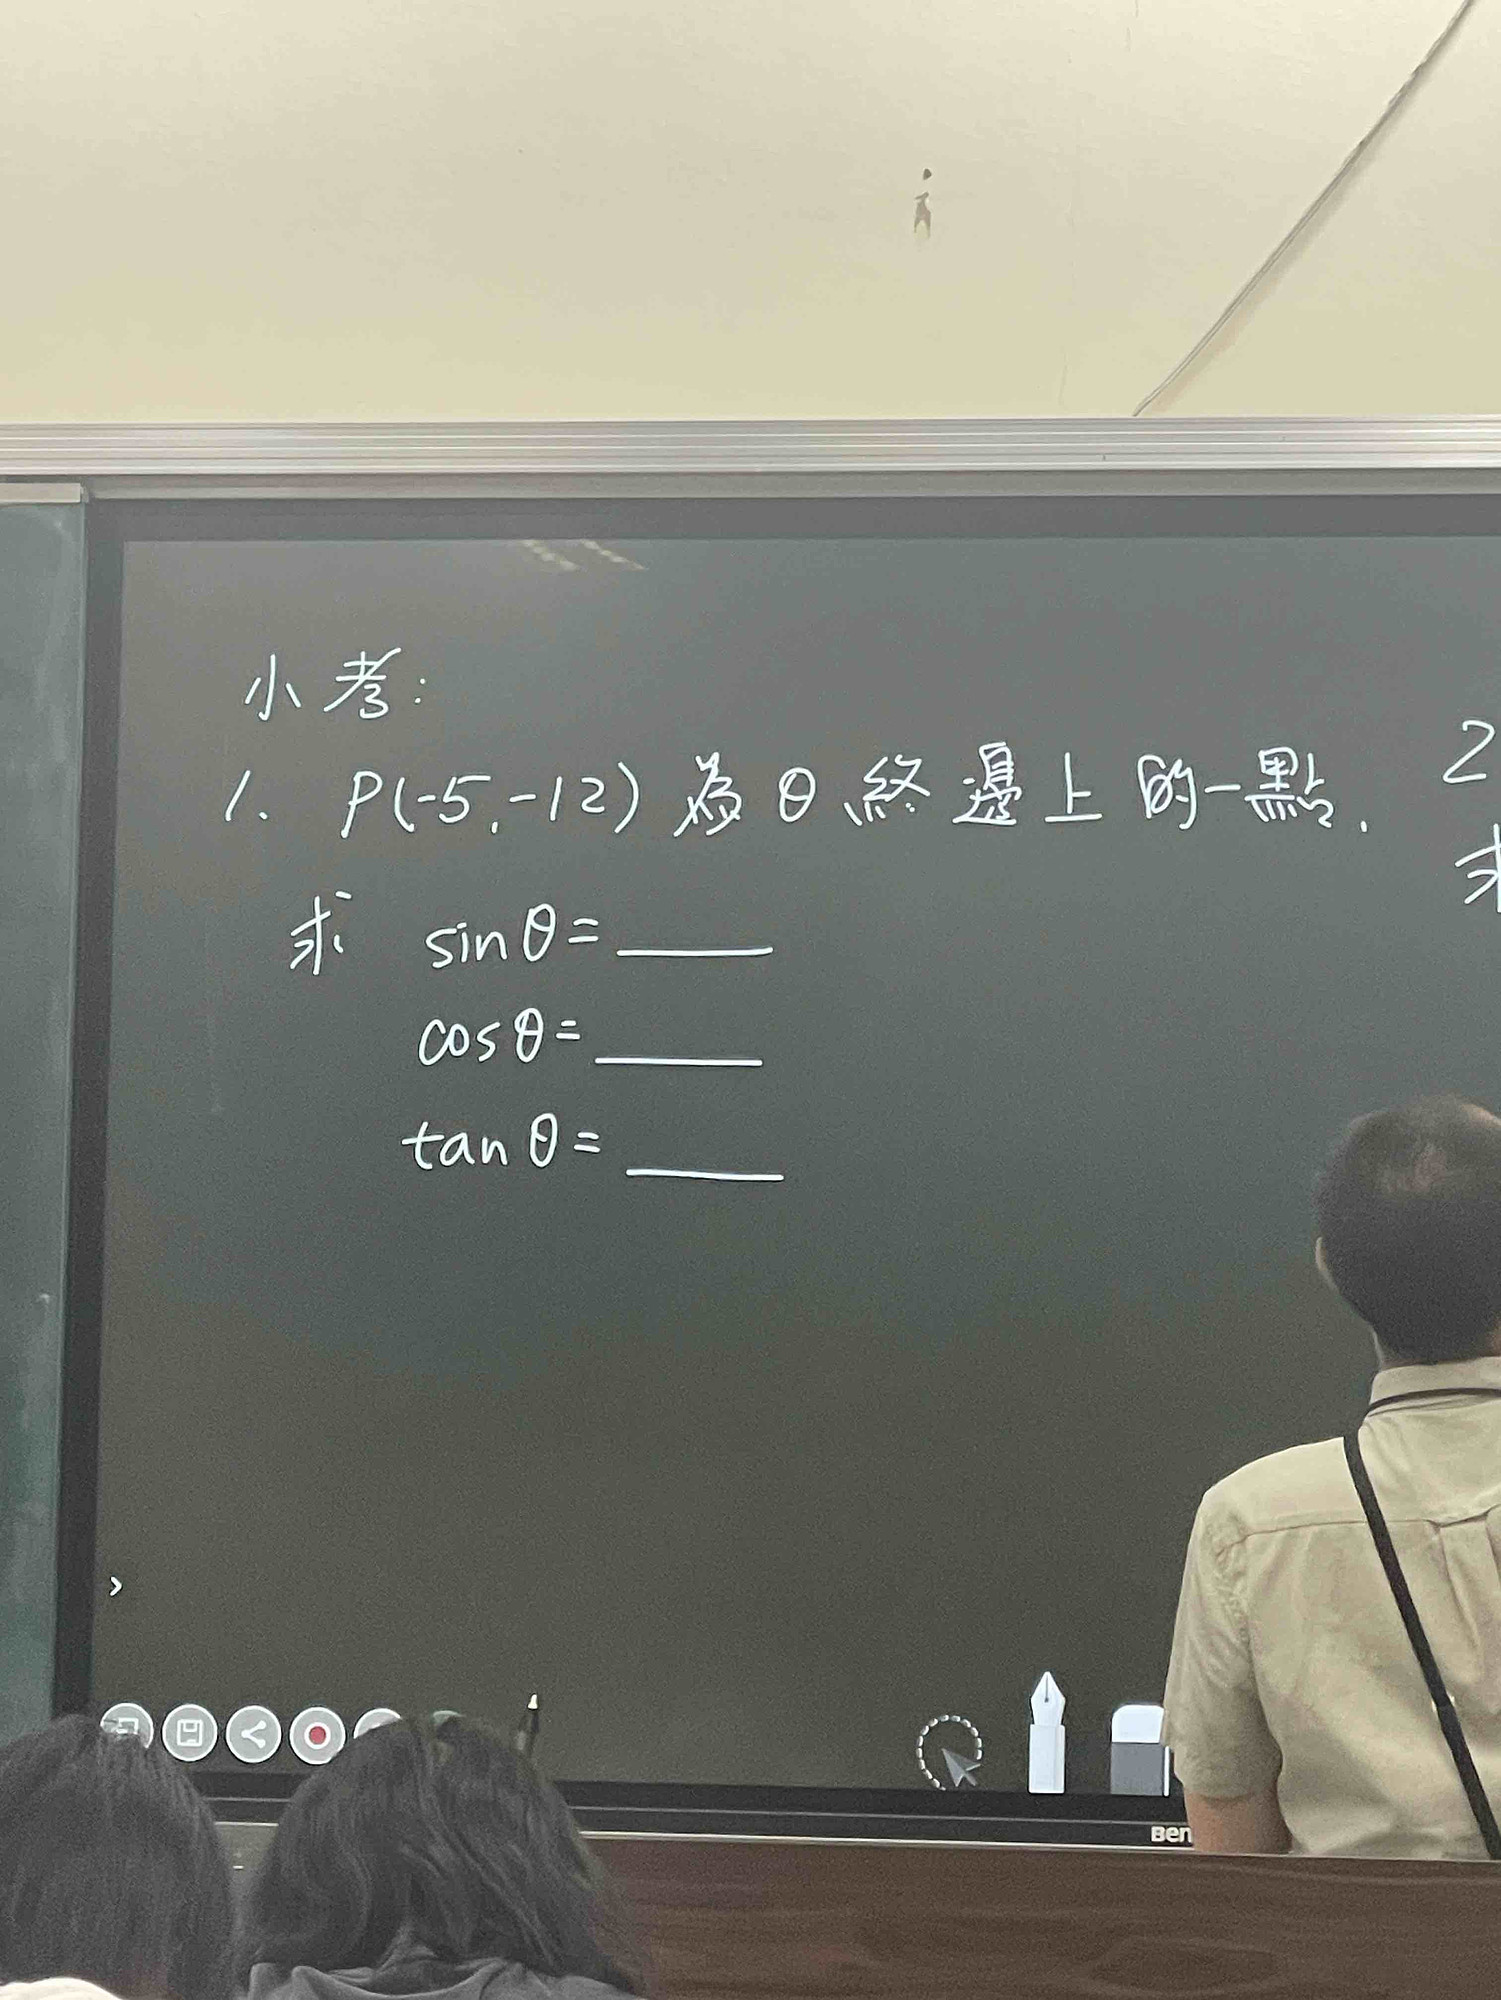 小考:
1. P(-5,-12) 為 θ 終邊上的一點. 2
求 sinθ= 求
cosθ=
tanθ=
Ben